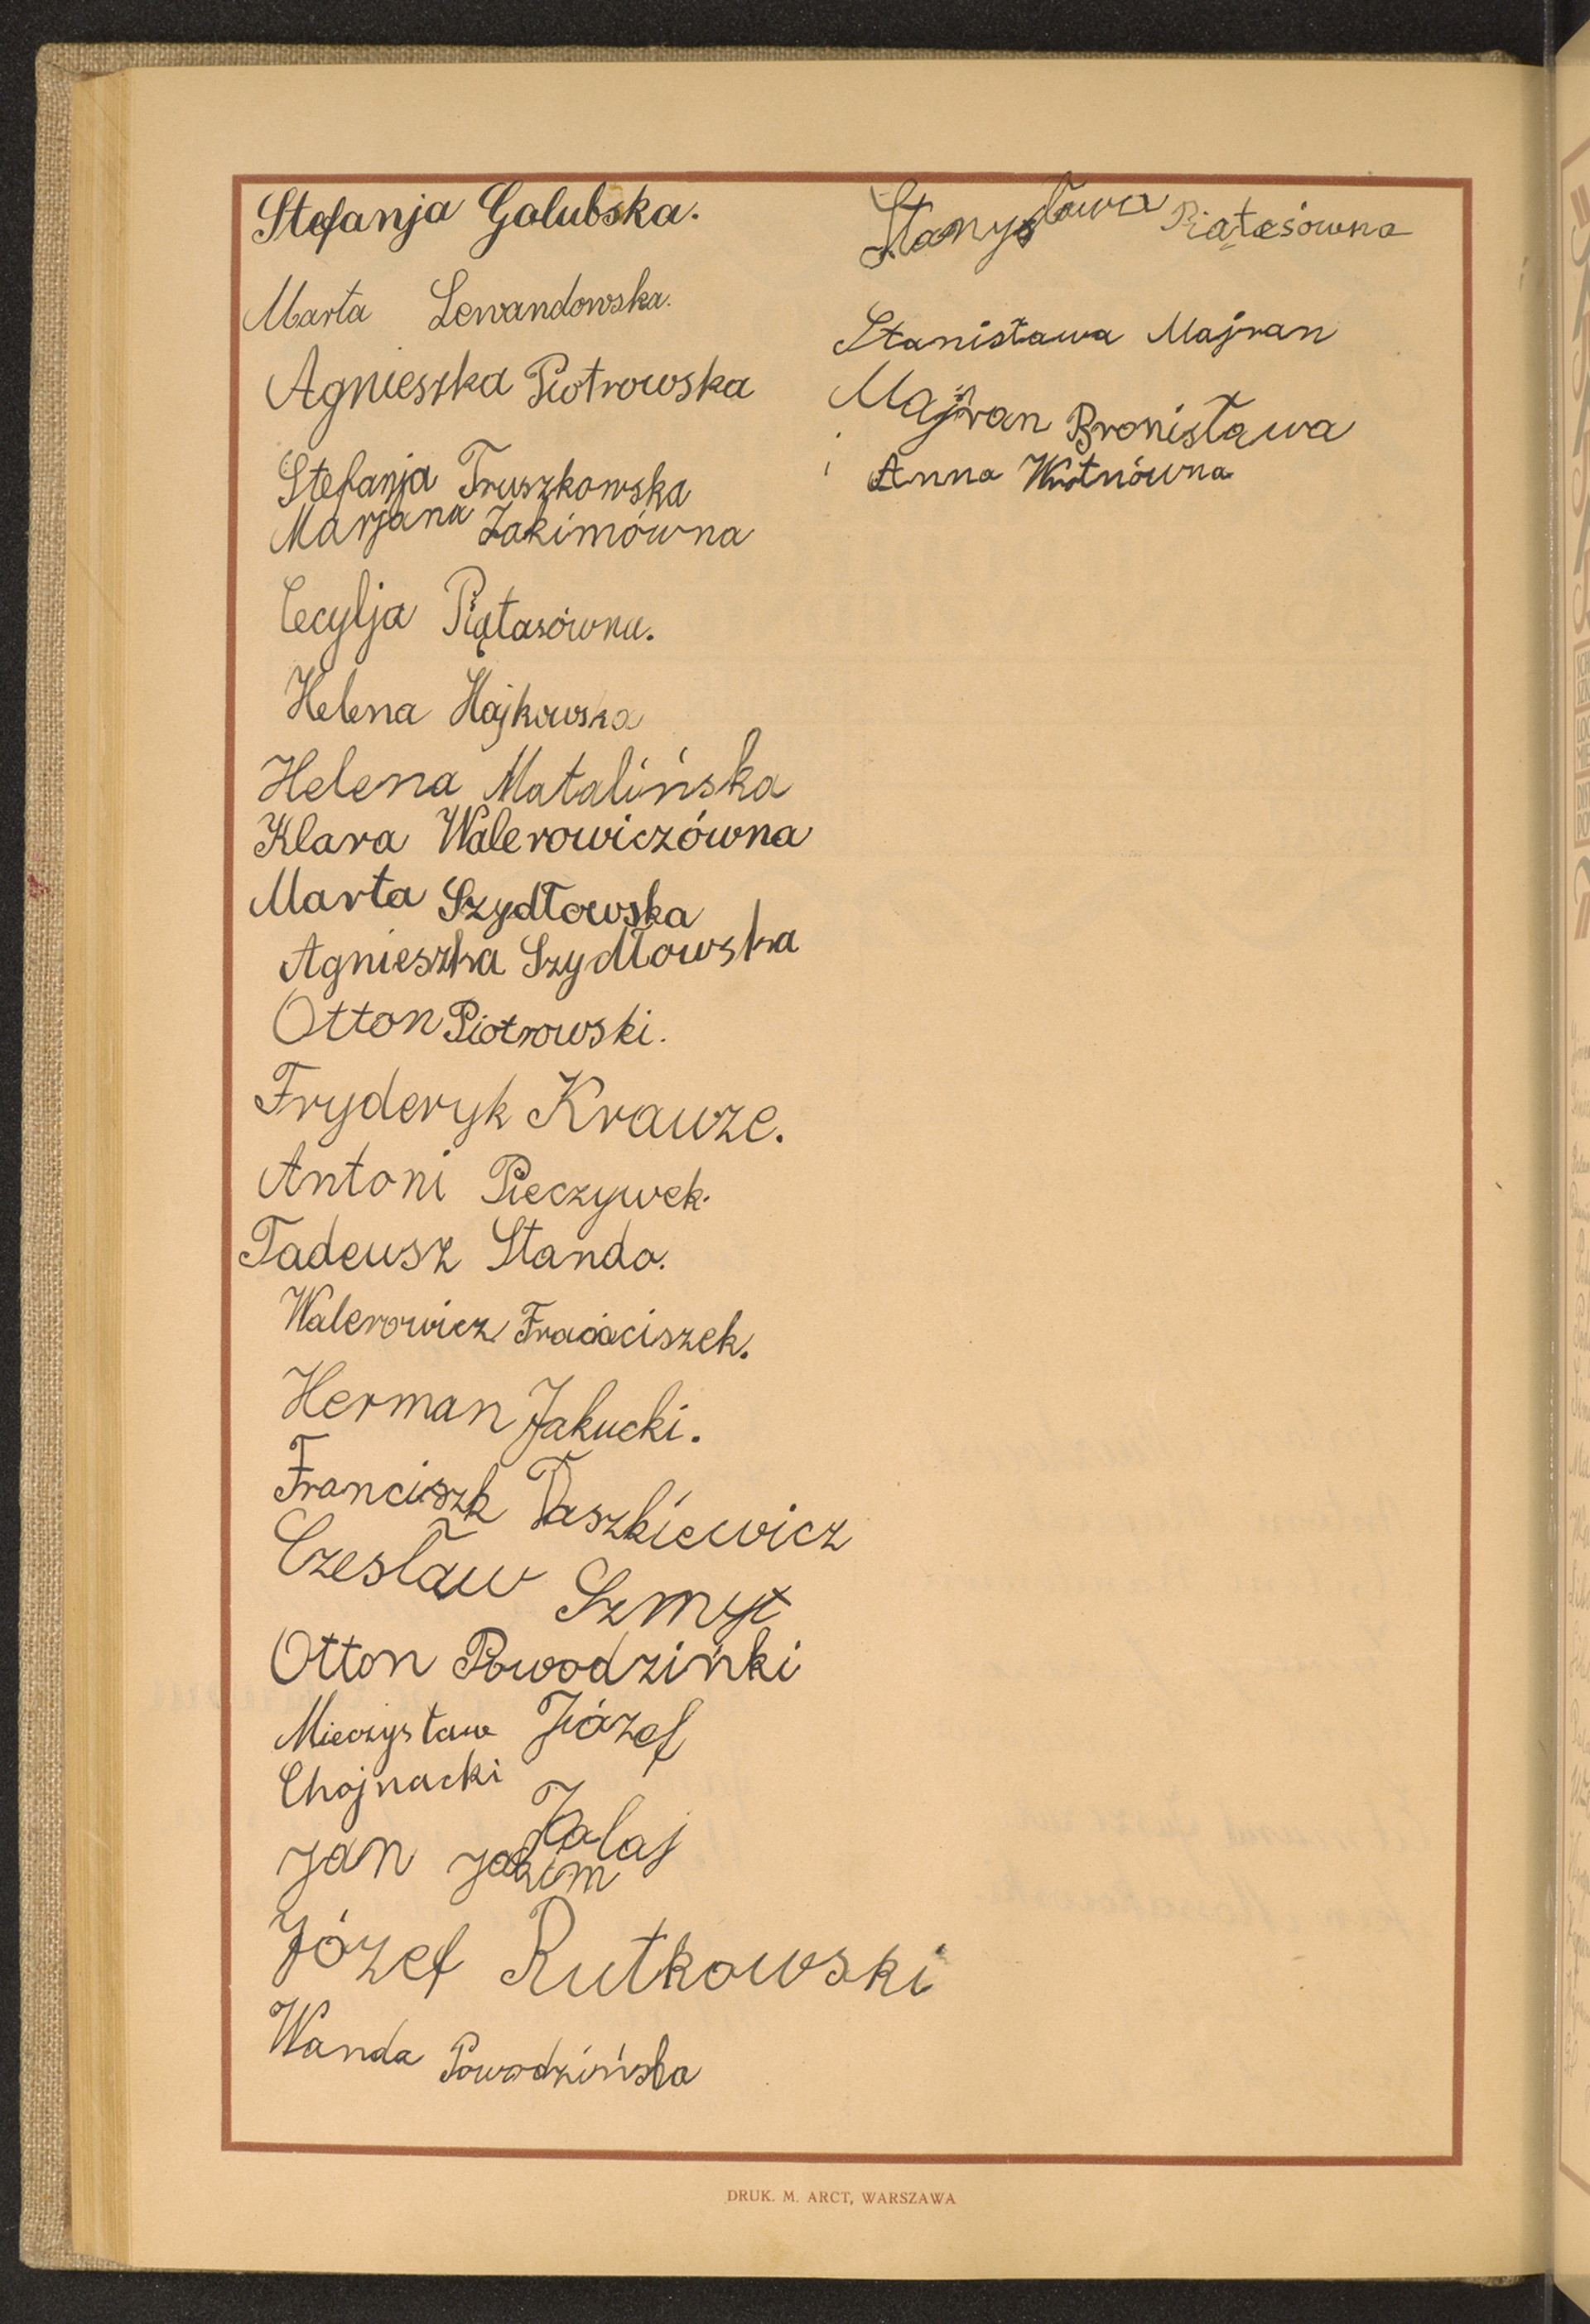 Stefanja Golubska.
Marta Lewandowska.
Agnieszka Piotrowska
Stefanja Truszkowska
Marjana Zakimówna
Cecylja Piątasówna.
Helena Hajkowska
Helena Matalińska
Klara Walerowiczówna
Marta Szydłowska
Agnieszka Szydłowska
Otton Piotrowski.
Fryderyk Krauze.
Antoni Pieczywek.
Tadeusz Stando.
Walerowicz
Herman Jakucki.
Franciszk Daszkiewicz
Czesław Szmyt
Otton Powodzińki
Mieczysław Józef
Chojnacki
Jan
Józef Rutkowski
Wanda Powodzińska
Stanysława Piątasówna
Stanisława Majran
Majran Bronisława
Anna
DRUK. M. ARCT, WARSZAWA